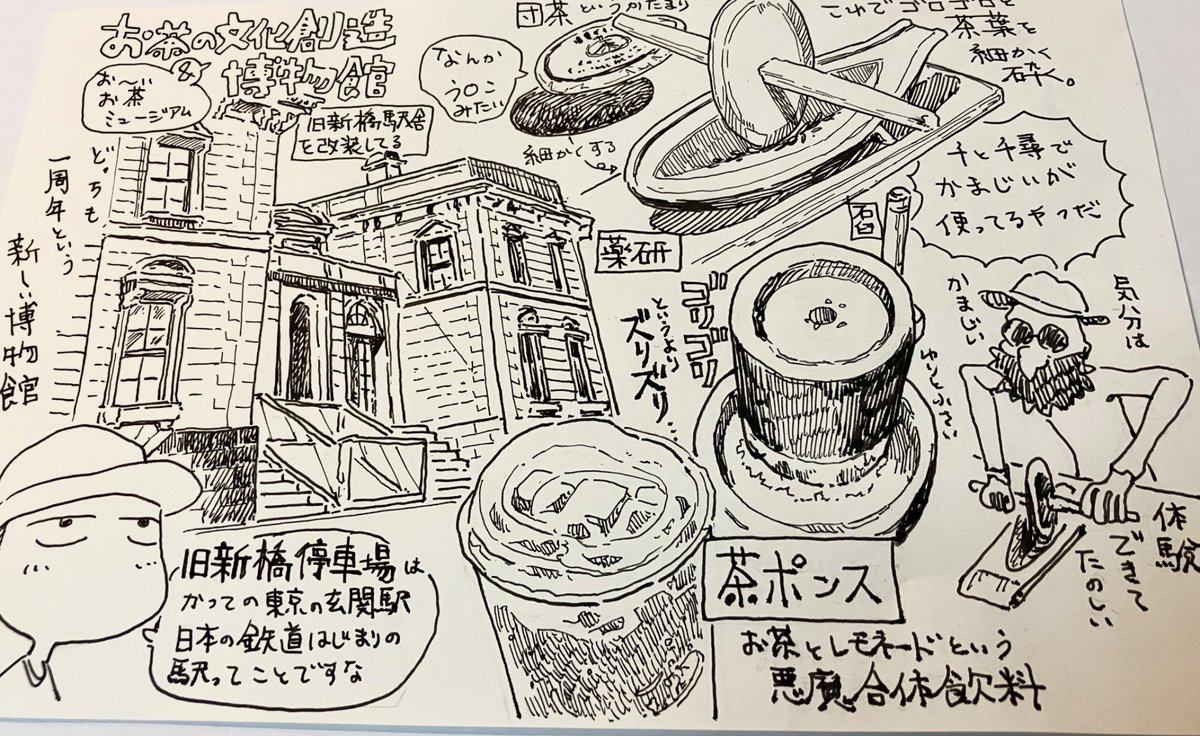 お茶の文化創造
博物館
&
お〜い
お茶
ミュージアム
どっちも
一周年という
新しい博物館
旧新橋駅舎
を改装してる
団茶というかたまり
なんか
うロこ
みたい
細かくする
これでゴロゴロと
茶葉を
細かく
砕く。
薬研
千と千尋で
かまじいが
使ってるやつだ
石臼
ゴリゴリ
というより
ズリズリ
気分は
かまじい
体験
できて
たのしい
旧新橋停車場は
かつての東京の玄関駅
日本の鉄道はじまりの
駅ってことですな
茶ポンス
お茶とレモネードという
悪魔合体飲料